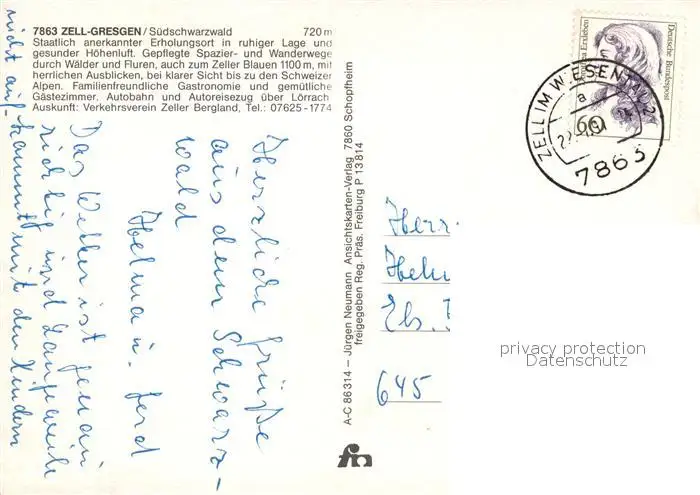 7863 ZELL-GRESGEN/Südschwarzwald 720 m
Staatlich anerkannter Erholungsort in ruhiger Lage und
gesunder Höhenluft. Gepflegte Spazier- und Wanderwege
durch Wälder und Fluren, auch zum Zeller Blauen 1100 m, mit
herrlichen Ausblicken, bei klarer Sicht bis zu den Schweizer
Alpen. Familienfreundliche Gastronomie und gemütliche
Gästezimmer. Autobahn und Autoreisezug über Lörrach
Auskunft: Verkehrsverein Zeller Bergland, Tel.: 07625-1774
Herzliche Grüße
aus dem Schwarz-
wald
Helma u. Gerd
Das Wetter ist genau
richtig und Langeweile
kommt mit den Kindern
nicht auf.
A-C 86314 – Jürgen Neumann Ansichtskarten-Verlag 7860 Schopfheim
freigegeben Reg. Präs. Freiburg P 13814
Deutsche Bundespost
Dorothea Erxleben
60
ZELL IM WIESENTAL 2
a
7863
Herr
Els.
645
privacy protection
Datenschutz